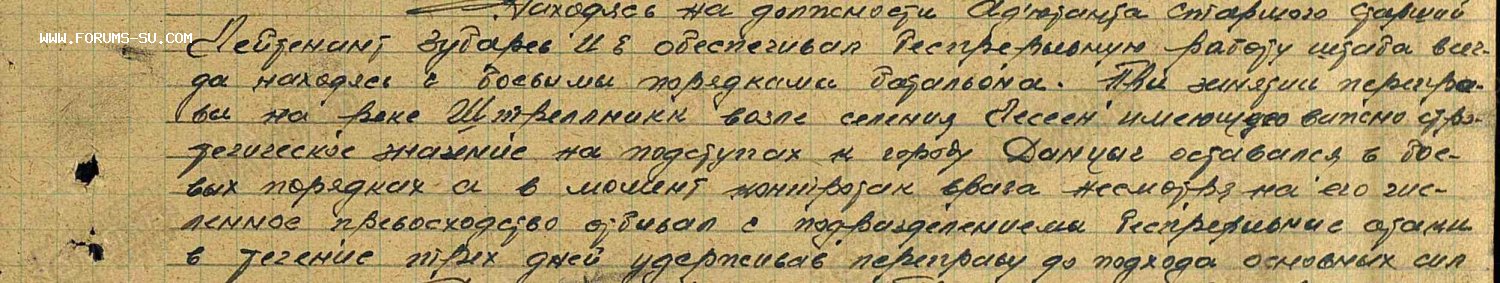 Находясь на должности Адъютанта старшего старший
WWW.FORUMS-SU.COM
Лейтенант Зубарев И Е обеспечивал беспрерывную работу штаба всег-
да находясь с боевыми порядками батальона. При занятии перепра-
вы на реке Штреллникк возле селения Лессен имеющего важно стра-
тегическое значение на подступах к городу Данцыг оставался в бое-
вых порядках а в момент контратак врага несмотря на его чис-
ленное превосходство отбивал с подразделениеми беспрерывние атаки
в течение трех дней удерживав переправу до подхода основных сил